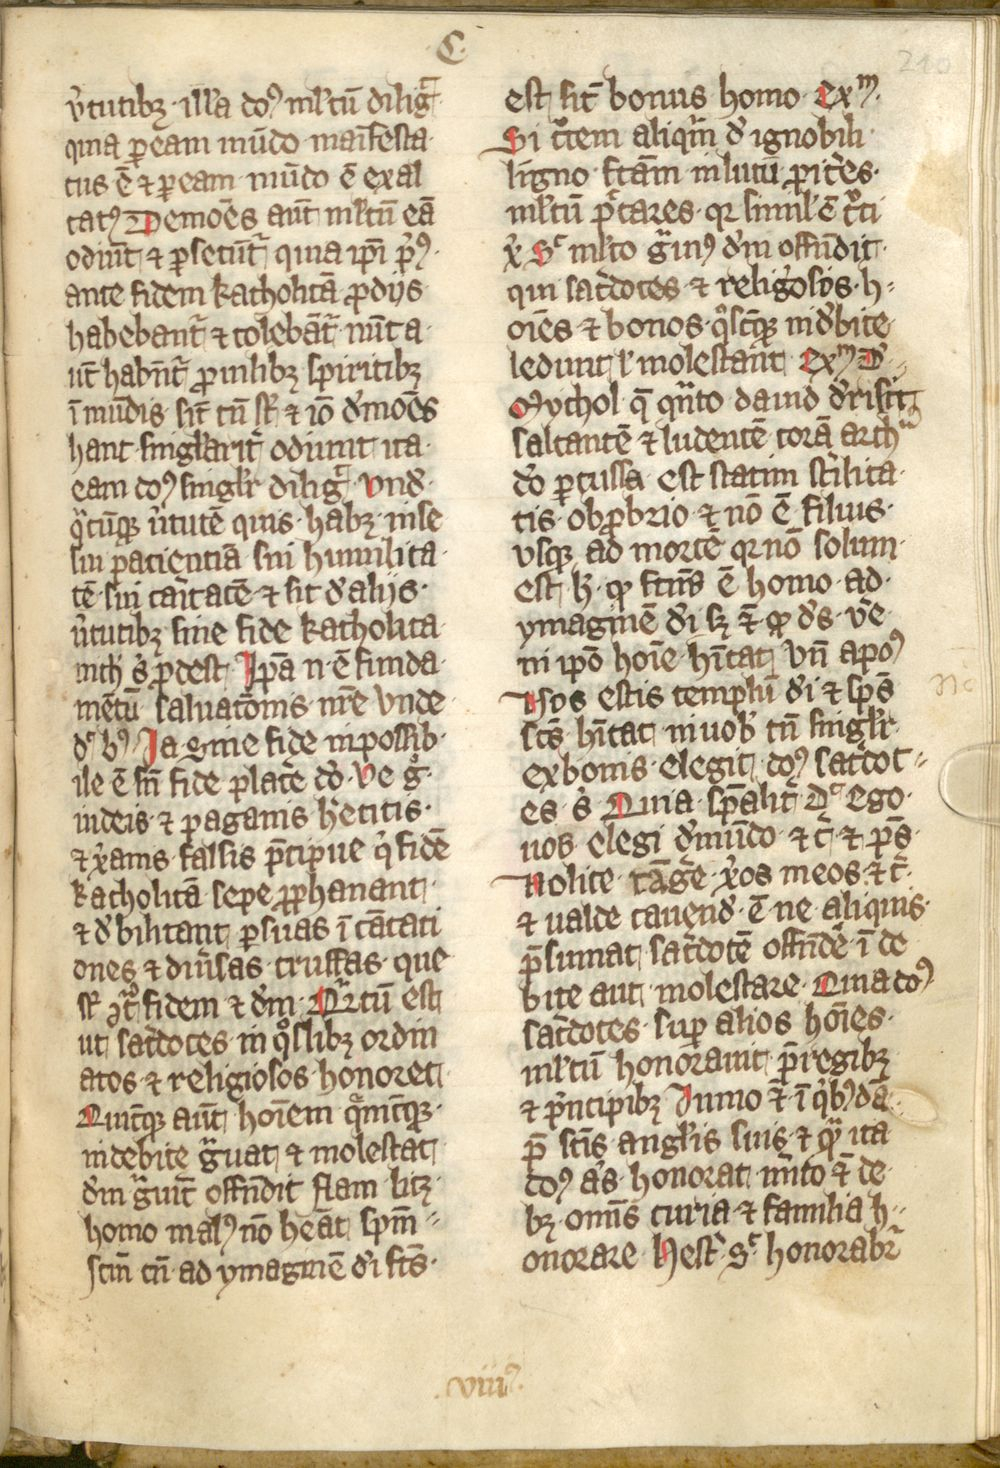 C
v̄tutibꝫ · illa doꝰ ml̄tū dilig̃
quia ꝑ eam mūdo maīfesta
tus ē ⁊ ꝑ eam mūdo ē exal
tatꝰ Demōēs aūt ml̄tū eā
odiūt ⁊ ꝑsecūt᷑ quia ip̄i pͥꝰ ·
ante fidem katholicā ꝓdijs
habebant᷑ ⁊ colebāt᷑ nūc a
ut̄ habn̄t᷑ ꝓ uilibꝫ spiritibꝫ
īmūdis sīt cū sr̄ ⁊ iō dꝰmōēs
hanc singl̄arit᷑ odiunt ita
eam doꝰ singl̄r dilig̃ · vnd̄ ·
qͣcūqꝫ v̄tutē quis habꝫ in se
siu paciencia siu humilita
tē · siu cāritatē · ⁊ sit dꝰ alijs ·
v̄tutibꝫ sine fide katholica
nich̄ s̄ ꝓdest Ip̄a n̄ · ē funda
mētū saluatōnis nr̄e vnde
dꝰ bꝰ Ja gͦ sine fide inpossib
ile ē sn̄ fide placē dō · Ve gͦ
iudeis · ⁊ paganis heticis ·
⁊ x̄anis falsis p̄cipue qͥ fidē
katholicā sepe ꝓphanant
⁊ dꝰbilitant ꝑ suas īcātati
ones ⁊ diūsas truffas · que
sr̄ ꝯtͣ fidem ⁊ dm̄ · Qͣrtū est
ut sac̄dotes in qͦslibꝫ ordin
atos ⁊ religiosos honoret
Quicūqꝫ aūt hoīem qͣmcūqꝫ ·
indebite gͣuat ⁊ molestat
dm̄ gͣuit̄ offn̄dit Nam licꝫ
homo malꝰ nō heāt sp̄m
scm̄ tn̄ · ad ymaginē dī fc̄s ·
est sic̄ bonus homo · Exᵐ ·
Si cͬcem aliqm̄ dꝰ ignobili ·
ligno fcām in lutū ꝓic̄es ·
ml̄tū pͨtares · qr simil̄ ē cͬci
x̄ Sᶜ ml̄to gͣuiꝰ dm̄ offn̄dit
qui sac̄dotes ⁊ religͦsos · h
oīēs ⁊ bonos · qͦscūqꝫ indꝰbite
ledunt l̄ molestant Exᵐ Dꝰ
Mychol q̄ qn̄to dauid dꝰrisit
saltantē ⁊ ludentē corā arch
dō ꝑcussa est statim st̄ilita
tis · obꝓbrio ⁊ nō ē filius ·
vsqꝫ ad mortē qr nō solum
est h̄ · qꝫ fc̄us ē homo · ad ·
ymaginē dī sꝫ ⁊̄ qꝫ ds̄ · ve̅
ni ip̄o hoīe hītat Vn̄ apoꝰ
Vos estis templū dī ⁊ sp̄s
sc̄s hītat in uob̄ tn̄ singl̄r
ex bonis · elegit doꝰ sac̄dot
es · s̄ · Quia sp̄alit᷑ Dͨ ego
uos elegi dꝰ mūdo ⁊ c̄ ⁊ ps̄ ·
Nolite tāge · x̄os meos · ⁊ c̄ ·
⁊ ualde cauend̄ · ē ne aliquis ·
p̄sumat sac̄dotē offn̄dē īde
bite aut molestare · Quia doꝰ
sac̄dotes · suꝑ alios hoīēs ·
ml̄tū honorauit p̄ regibꝫ
⁊ pͥncipibꝫ Immo ⁊̄ ī qͥbꝰdā ·
p̄ sc̄is angl̄is suis ⁊ qꝫ ita
doꝰ · a͛s honorat m̄ito ⁊̄ de
bꝫ omīs curia ⁊ familia h
onorare Hest̄ · Sᶜ honorabr̄
viiiꝰ